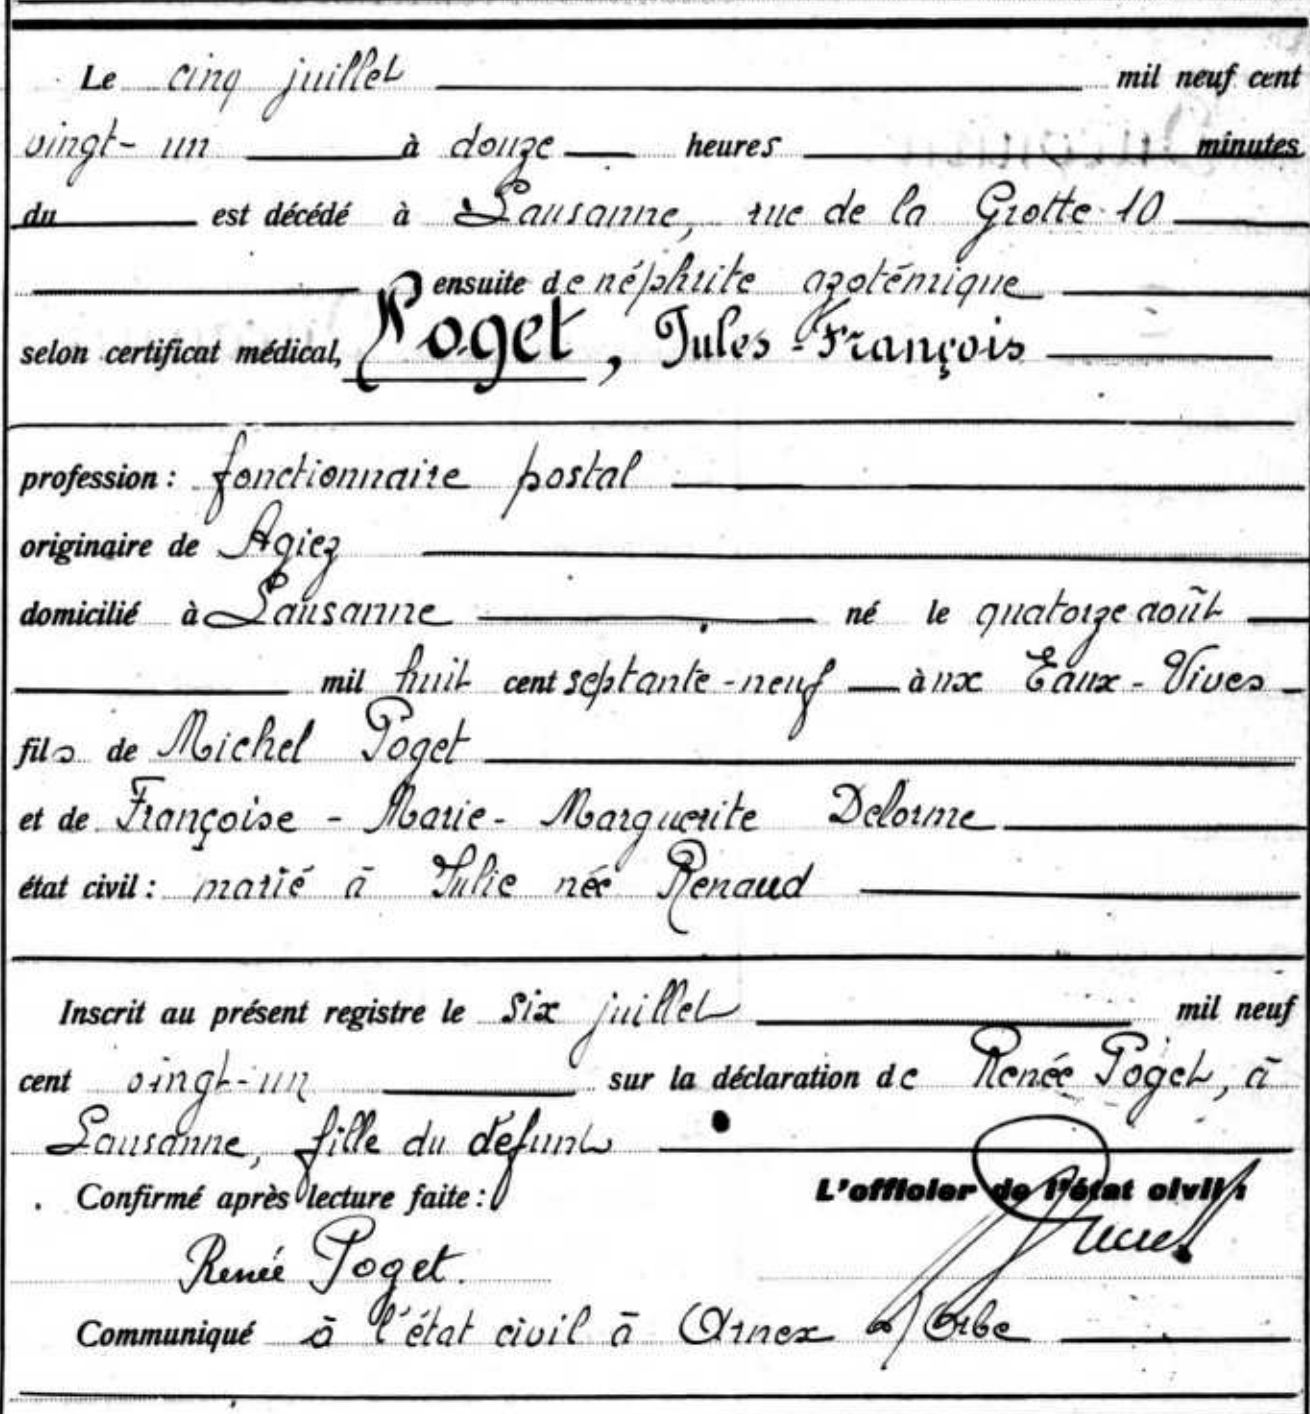 Le cinq juillet mil neuf cent
vingt-un à douze heures minutes
du est décédé à Lausanne, rue de la Grotte 10
ensuite de néphrite azotémique
selon certificat médical, Poget, Jules-François
profession : fonctionnaire postal
originaire de Agiez
domicilié à Lausanne né le quatorze août
mil huit cent septante-neuf aux Eaux-Vives
fils de Michel Poget
et de Françoise-Marie-Marguerite Delorme
état civil : marié à Julie née Renaud
Inscrit au présent registre le six juillet mil neuf
cent vingt-un sur la déclaration de Renée Poget, à
Lausanne, fille du défunt
Confirmé après lecture faite : L'officier de l'état civil :
Renée Poget.
Communiqué à l'état civil à Arnex s/Orbe